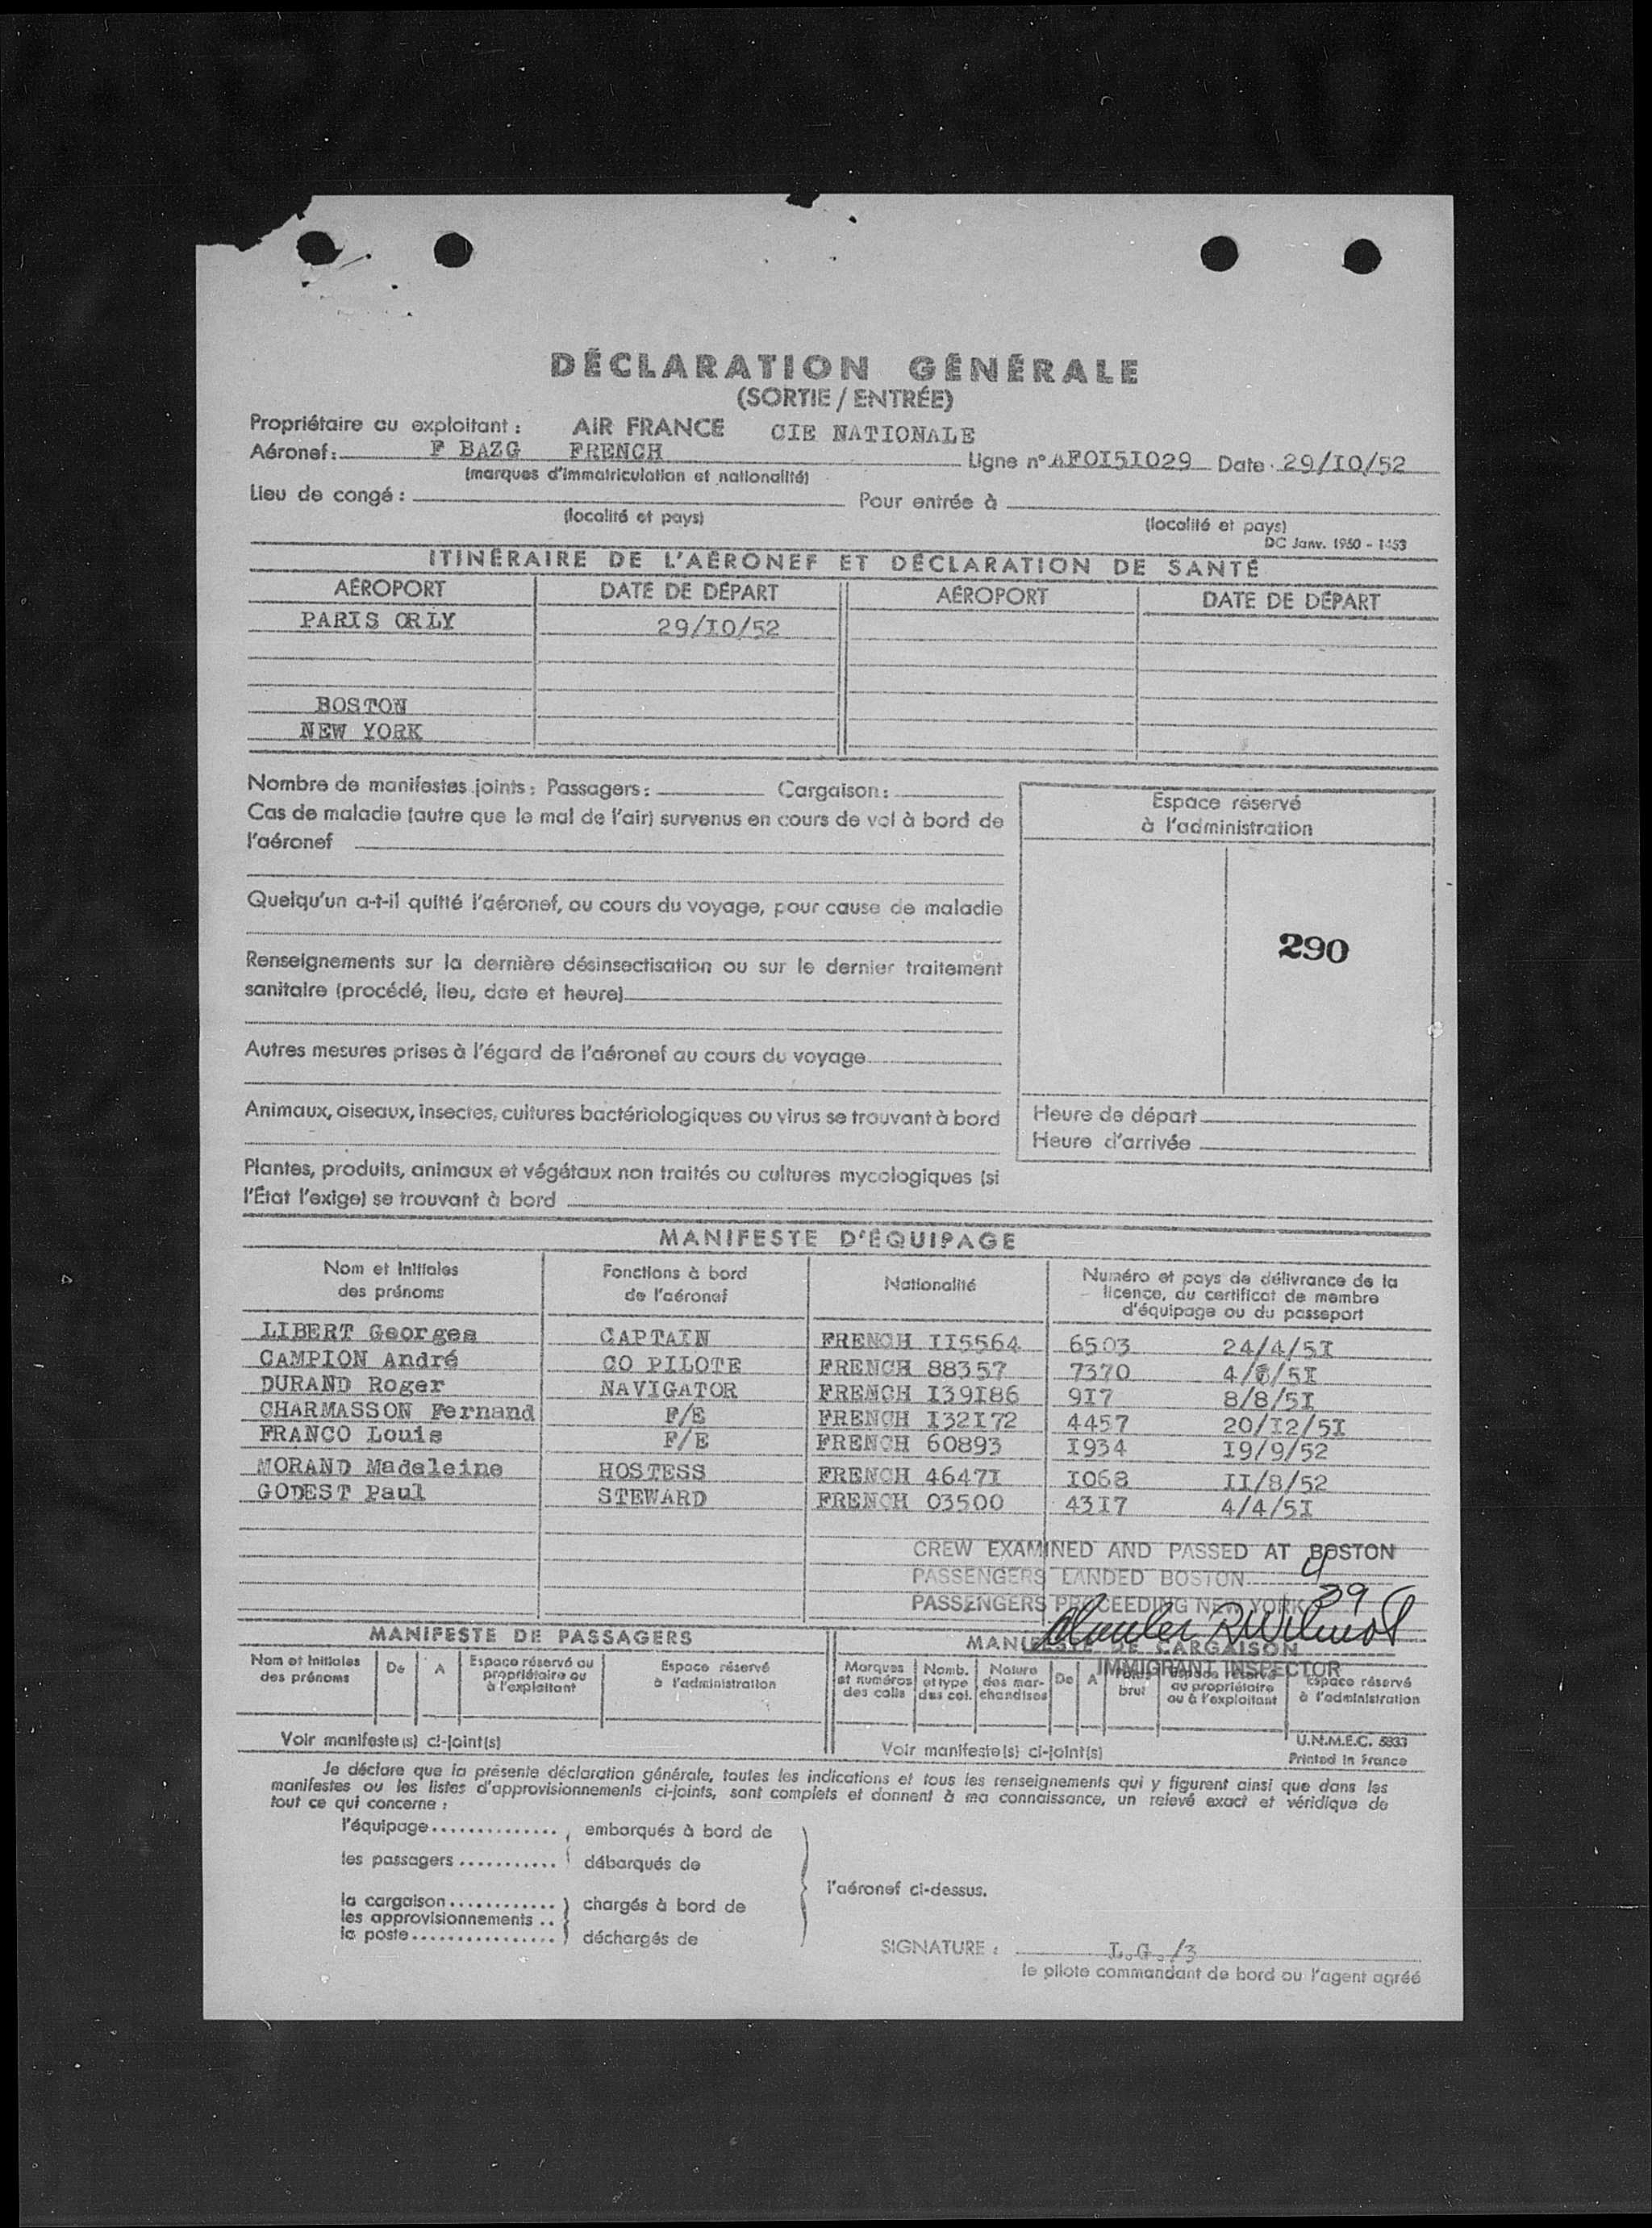 DÉCLARATION GÉNÉRALE
(SORTIE / ENTRÉE)
Propriétaire ou exploitant : AIR FRANCE CIE NATIONALE
Aéronef : F BAZG FRENCH Ligne n° AF0I5I029 Date 29/I0/52
(marques d'immatriculation et nationalité)
Lieu de congé : Pour entrée à
(localité et pays) (localité et pays)
DC Janv. 1950 - 1453
ITINÉRAIRE DE L'AÉRONEF ET DÉCLARATION DE SANTÉ
AÉROPORT DATE DE DÉPART AÉROPORT DATE DE DÉPART
PARIS ORLY 29/I0/52
BOSTON
NEW YORK
Nombre de manifestes joints : Passagers : Cargaison :
Cas de maladie (autre que le mal de l'air) survenus en cours de vol à bord de
l'aéronef
Quelqu'un a-t-il quitté l'aéronef, au cours du voyage, pour cause de maladie
Renseignements sur la dernière désinsectisation ou sur le dernier traitement
sanitaire (procédé, lieu, date et heure)
Autres mesures prises à l'égard de l'aéronef au cours du voyage
Animaux, oiseaux, insectes, cultures bactériologiques ou virus se trouvant à bord
Plantes, produits, animaux et végétaux non traités ou cultures mycologiques (si
l'État l'exige) se trouvant à bord
Espace réservé
à l'administration
290
Heure de départ
Heure d'arrivée
MANIFESTE D'ÉQUIPAGE
Nom et Initiales
des prénoms
Fonctions à bord
de l'aéronef
Nationalité
Numéro et pays de délivrance de la
licence, du certificat de membre
d'équipage ou du passeport
LIBERT Georges CAPTAIN FRENCH II5564 6503 24/4/5I
CAMPION André CO PILOTE FRENCH 88357 7370 4/ /5I
DURAND Roger NAVIGATOR FRENCH I39I86 9I7 8/8/5I
CHARMASSON Fernand F/E FRENCH I32I72 4457 20/I2/5I
FRANCO Louis F/E FRENCH 60893 I934 I9/9/52
MORAND Madeleine HOSTESS FRENCH 4647I I068 II/8/52
GODEST Paul STEWARD FRENCH 03500 43I7 4/4/5I
CREW EXAMINED AND PASSED AT BOSTON
PASSENGERS LANDED BOSTON 4
PASSENGERS PROCEEDING NEW YORK 39
IMMIGRANT INSPECTOR
MANIFESTE DE PASSAGERS
Nom et Initiales
des prénoms
De
A
Espace réservé au
propriétaire ou
à l'exploitant
Espace réservé
à l'administration
Voir manifeste(s) ci-joint(s)
MANIFESTE DE CARGAISON
Marques
et numéros
des colis
Nomb.
et type
des col.
Nature
des mar-
chandises
De
A
brut
Espace réservé
au propriétaire
ou à l'exploitant
Espace réservé
à l'administration
Voir manifeste(s) ci-joint(s)
U.N.M.E.C. 5333
Printed in France
Je déclare que la présente déclaration générale, toutes les indications et tous les renseignements qui y figurent ainsi que dans les
manifestes ou les listes d'approvisionnements ci-joints, sont complets et donnent à ma connaissance, un relevé exact et véridique de
tout ce qui concerne :
l'équipage.............. embarqués à bord de
les passagers........... débarqués de
l'aéronef ci-dessus.
la cargaison............ chargés à bord de
les approvisionnements ..
la poste................ déchargés de
SIGNATURE : L.G./3
le pilote commandant de bord ou l'agent agréé